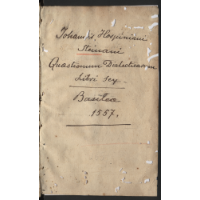 Johannis Hospiniani
Steinani
Quaestionum Dialecticarum
Libri sex.
Basilea
1557.